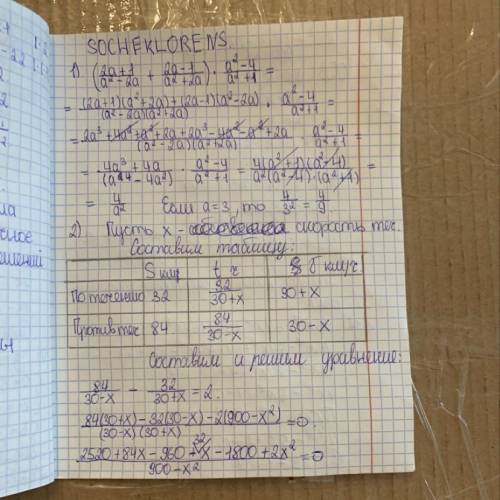 SOCHEKLORENS.
1) ( (2a+1)/(a²-2a) + (2a-1)/(a²+2a) ) · (a²-4)/(a²+1) =
= ((2a+1)(a²+2a)+(2a-1)(a²-2a))/((a²-2a)(a²+2a)) · (a²-4)/(a²+1) =
= (2a³+4a²+a²+2a+2a³-4a²-a²+2a)/((a²-2a)(a²+2a)) · (a²-4)/(a²+1) =
= (4a³+4a)/(a⁴-4a²) · (a²-4)/(a²+1) = (4(a²+1)(a²-4))/(a²(a²-4)·(a²+1)) =
= 4/a² Если a=3, то 4/3² = 4/9.
2) Пусть x - скорость теч.
Составим таблицу:
S км t ч км/ч
По течению 32 32/(30+x) 30+x
Против теч 84 84/(30-x) 30-x
Составим и решим уравнение:
84/(30-x) - 32/(30+x) = 2.
(84(30+x)-32(30-x)-2(900-x²))/((30-x)(30+x)) = 0.
(2520+84x-960+32x-1800+2x²)/(900-x²) = 0